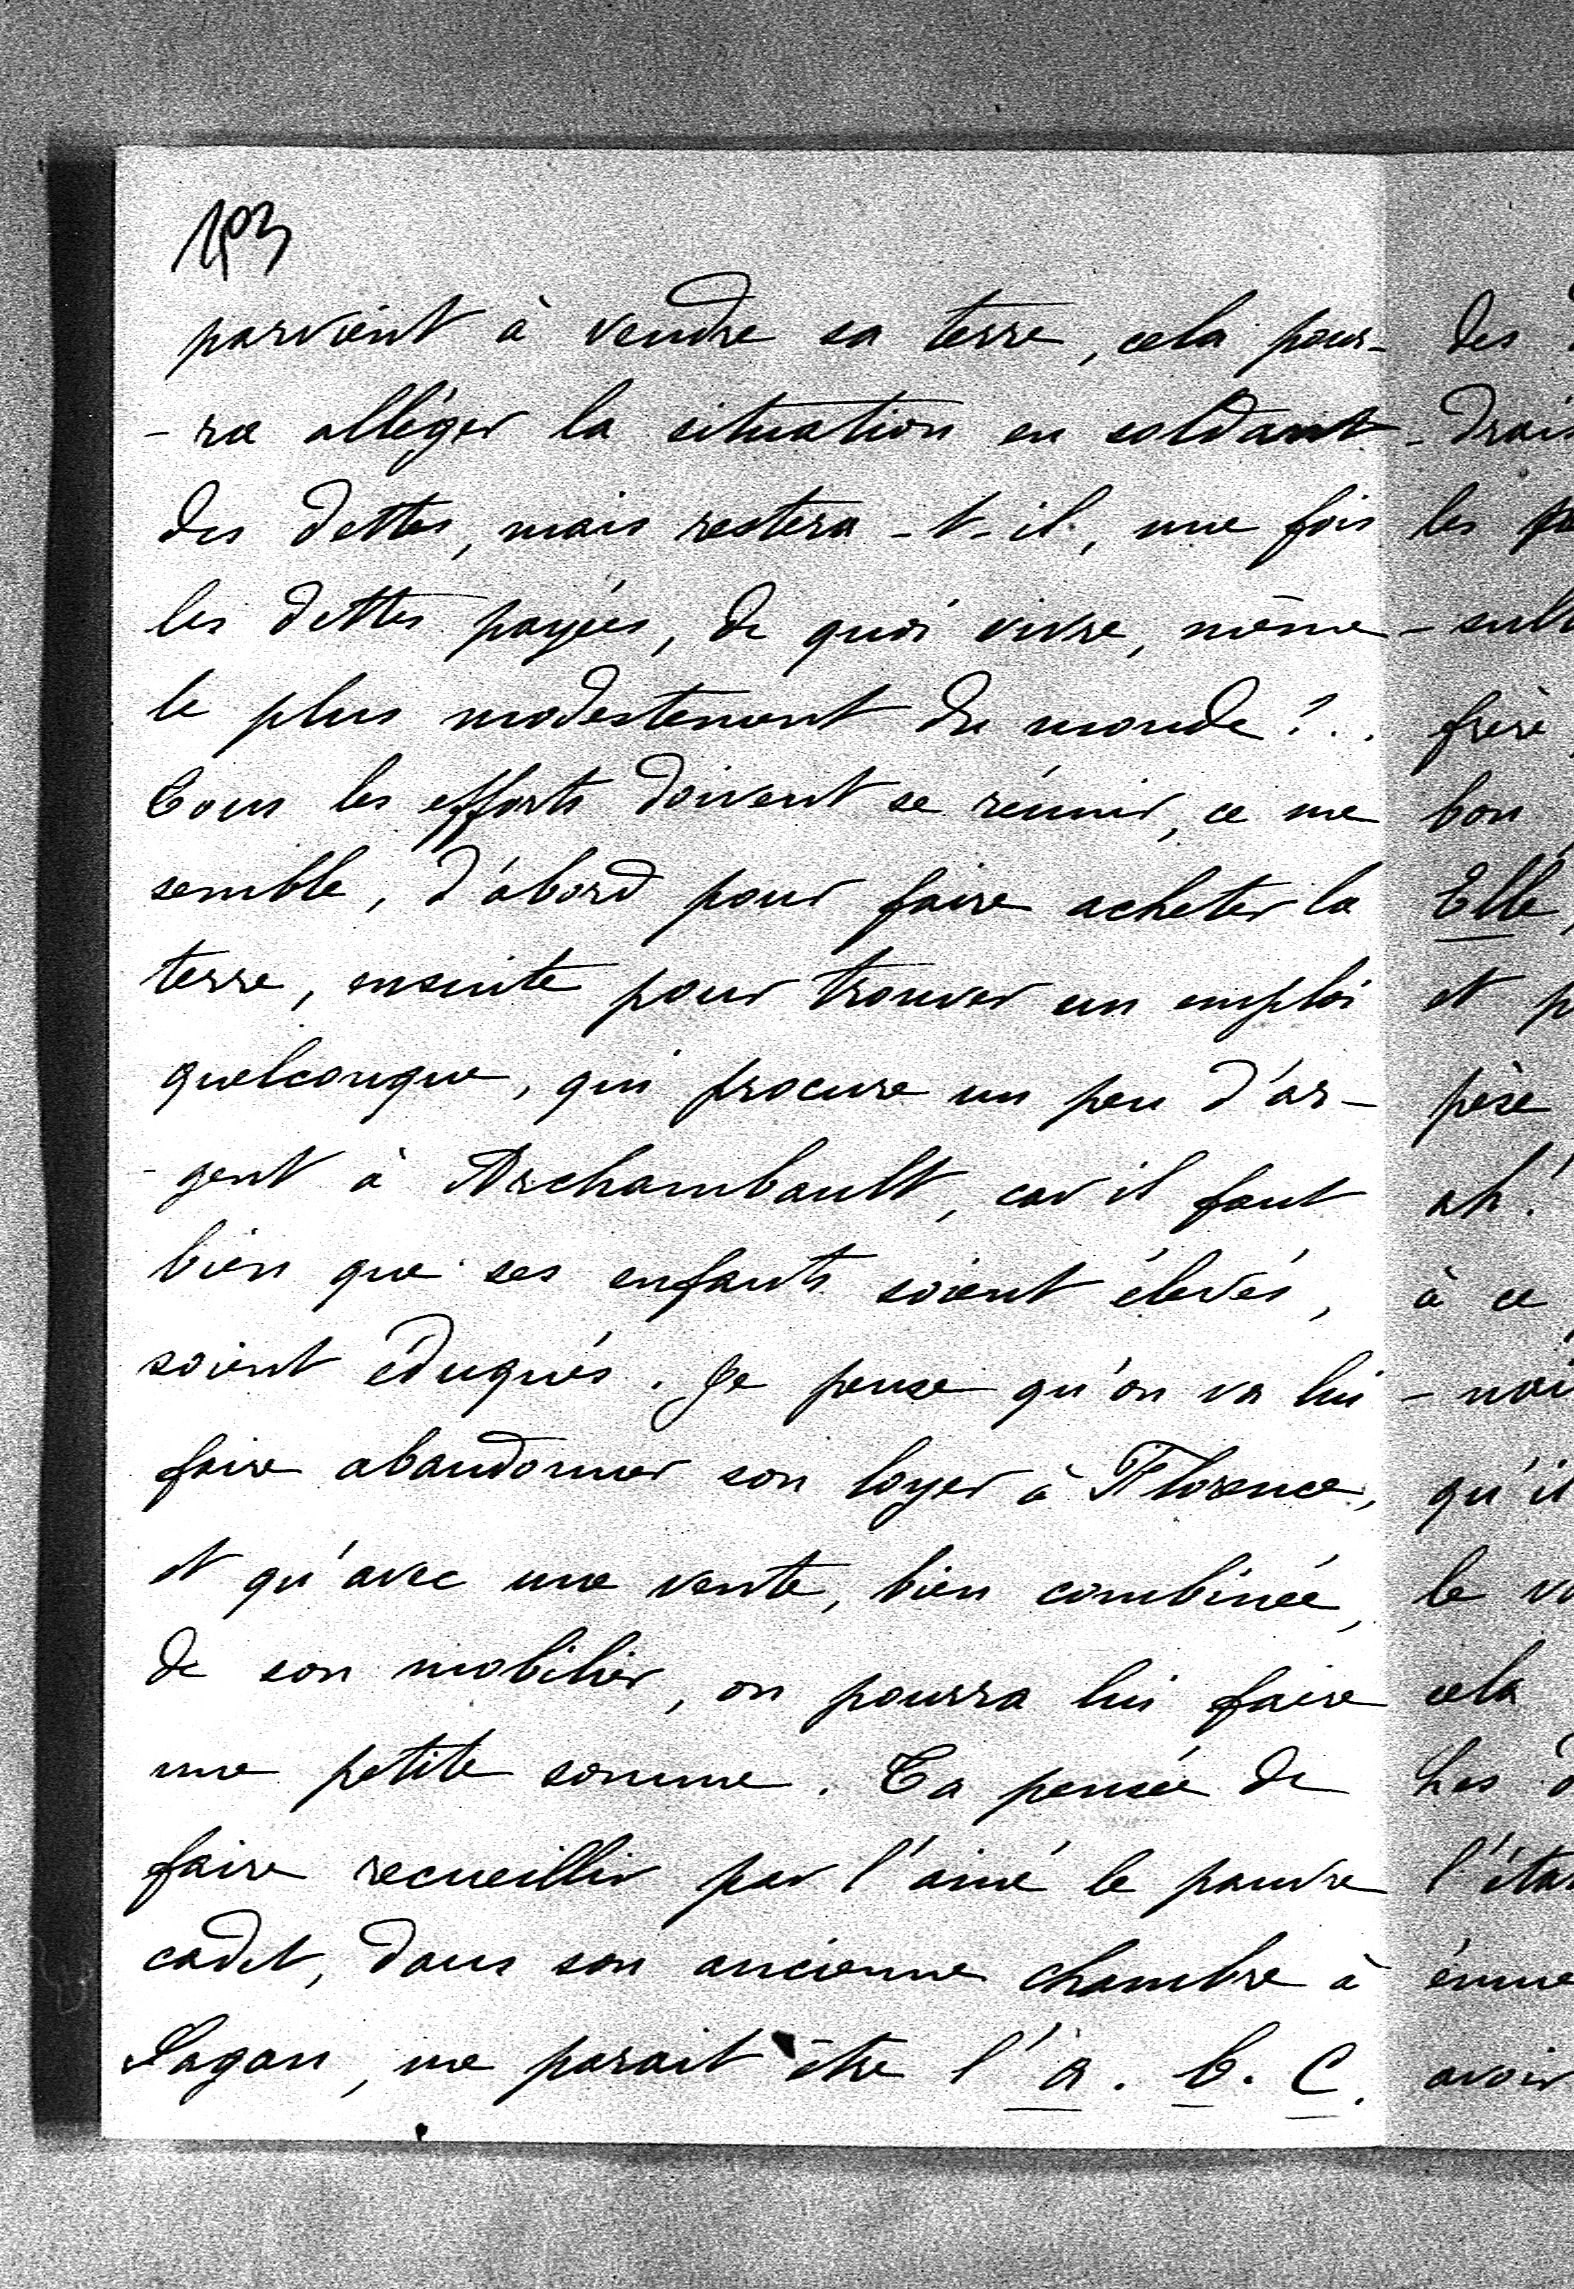 103
parvient à vendre sa terre, cela pour-
-ra alléger la situation en soldant
des dettes, mais restera-t-il, une fois
les dettes payées, de quoi vivre, même
le plus modestement du monde ?..
Tous les efforts doivent se réunir, ce me
semble, d'abord pour faire acheter la
terre, ensuite pour trouver un emploi
quelconque, qui procure un peu d'ar-
-gent à Archambault, car il faut
bien que ses enfants soient élevés,
soient éduqués. Je pense qu'on va lui
faire abandonner son loyer à Florence,
et qu'avec une vente, bien combinée,
de son mobilier, on pourra lui faire
une petite somme. Ta pensée de
faire recueillir par l'ainé le pauvre
cadet, dans son ancienne chambre à
Sagan, me parait être l'a. b. c.
des
-drais
les
-
frère
bon
Elle,
et
père
ah!
à ce
-
qu'il
le
cela
Les
l'éta
émue
avoir